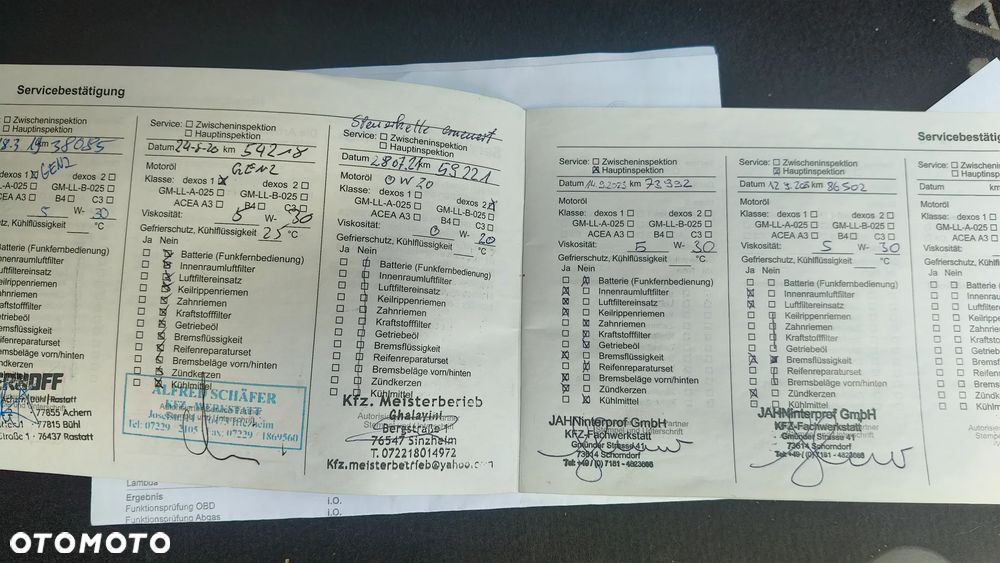 Servicebestätigung
Service: ☐ Zwischeninspektion
☐ Hauptinspektion
18.3 19 km 38085
GEN2
Klasse: dexos 1 ☒ dexos 2 ☐
GM-LL-A-025 ☐ GM-LL-B-025 ☐
ACEA A3 ☐ B4 ☐ C3 ☐
5 W- 30
Gefrierschutz, Kühlflüssigkeit °C
Ja Nein
Batterie (Funkfernbedienung)
Innenraumluftfilter
Luftfiltereinsatz
Keilrippenriemen
Zahnriemen
Kraftstofffilter
Getriebeöl
Bremsflüssigkeit
Reifenreparaturset
Bremsbeläge vorn/hinten
Zündkerzen
77855 Achern
77815 Bühl
76437 Rastatt
Service: ☐ Zwischeninspektion
☐ Hauptinspektion
Datum 24-8-20 km 54218
Motoröl GEN2
Klasse: dexos 1 ☒ dexos 2 ☐
GM-LL-A-025 ☐ GM-LL-B-025 ☐
ACEA A3 ☐ B4 ☐ C3 ☐
Viskosität: 5 W- 30
Gefrierschutz, Kühlflüssigkeit 25 °C
Ja Nein
Batterie (Funkfernbedienung)
Innenraumluftfilter
Luftfiltereinsatz
Keilrippenriemen
Zahnriemen
Kraftstofffilter
Getriebeöl
Bremsflüssigkeit
Reifenreparaturset
Bremsbeläge vorn/hinten
Zündkerzen
Kühlmittel
ALFRED SCHÄFER
KFZ-WERKSTATT
Tel: 07229 2105 Fax: 07229 1869560
Steuerkette erneuert
Service: ☐ Zwischeninspektion
☐ Hauptinspektion
Datum 28.07.21 km 59221
Motoröl 0W20
Klasse: dexos 1 ☐ dexos 2 ☒
GM-LL-A-025 ☐ GM-LL-B-025 ☐
ACEA A3 ☐ B4 ☐ C3 ☐
Viskosität: 0 W- 20
Gefrierschutz, Kühlflüssigkeit °C
Ja Nein
Batterie (Funkfernbedienung)
Innenraumluftfilter
Luftfiltereinsatz
Keilrippenriemen
Zahnriemen
Kraftstofffilter
Getriebeöl
Bremsflüssigkeit
Reifenreparaturset
Bremsbeläge vorn/hinten
Zündkerzen
Kühlmittel
Kfz. Meisterberieb
Ghalayini
Bergstraße
76547 Sinzheim
T.072218014972
Servicebestätig
Service: ☐ Zwischeninspektion
☒ Hauptinspektion
Datum 14.9.2023 km 73992
Motoröl
Klasse: dexos 1 ☐ dexos 2 ☐
GM-LL-A-025 ☐ GM-LL-B-025 ☐
ACEA A3 ☐ B4 ☐ C3 ☐
Viskosität: 5 W- 30
Gefrierschutz, Kühlflüssigkeit °C
Ja Nein
Batterie (Funkfernbedienung)
Innenraumluftfilter
Luftfiltereinsatz
Keilrippenriemen
Zahnriemen
Kraftstofffilter
Getriebeöl
Bremsflüssigkeit
Reifenreparaturset
Bremsbeläge vorn/hinten
Zündkerzen
Kühlmittel
JAHNinterprof GmbH
KFZ-Fachwerkstatt
Gmünder Strasse 41
73614 Schorndorf
Tel: +49 / (0) 7181 - 4823686
Service: ☐ Zwischeninspektion
☒ Hauptinspektion
km 86502
Motoröl
Klasse: dexos 1 ☐ dexos 2 ☐
GM-LL-A-025 ☐ GM-LL-B-025 ☐
ACEA A3 ☐ B4 ☐ C3 ☐
Viskosität: 5 W- 30
Gefrierschutz, Kühlflüssigkeit °C
Ja Nein
Batterie (Funkfernbedienung)
Innenraumluftfilter
Luftfiltereinsatz
Keilrippenriemen
Zahnriemen
Kraftstofffilter
Getriebeöl
Bremsflüssigkeit
Reifenreparaturset
Bremsbeläge vorn/hinten
Zündkerzen
Kühlmittel
JAHNinterprof GmbH
KFZ-Fachwerkstatt
Gmünder Strasse 41
73614 Schorndorf
Tel: +49 / (0) 7181 - 4823686
Service: ☐ Zw
☐ Ha
Datum
Motoröl
Klasse: dexos
GM-LL-A-025
ACEA A3
Viskosität:
Gefrierschutz, Kühlf
Ja Nein
Lambda
Ergebnis i.O.
Funktionsprüfung OBD i.O.
Funktionsprüfung Abgas
OTOMOTO